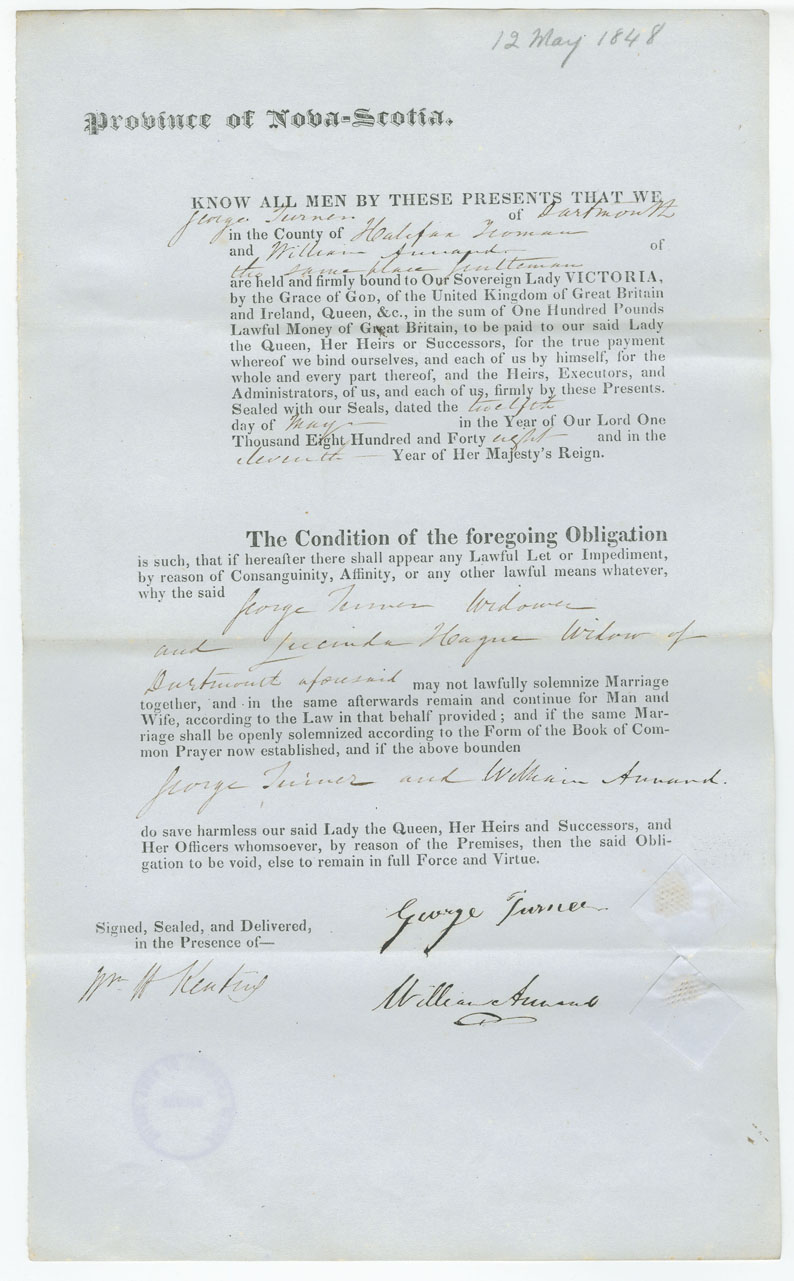 12 May 1848
Province of Nova-Scotia.
KNOW ALL MEN BY THESE PRESENTS THAT WE
George Turner of Dartmouth
in the County of Halifax Yeoman
and William Annand of
the same place Gentleman
are held and firmly bound to Our Sovereign Lady VICTORIA,
by the Grace of GOD, of the United Kingdom of Great Britain
and Ireland, Queen, &c., in the sum of One Hundred Pounds
Lawful Money of Great Britain, to be paid to our said Lady
the Queen, Her Heirs or Successors, for the true payment
whereof we bind ourselves, and each of us by himself, for the
whole and every part thereof, and the Heirs, Executors, and
Administrators, of us, and each of us, firmly by these Presents.
Sealed with our Seals, dated the twelfth
day of May in the Year of Our Lord One
Thousand Eight Hundred and Forty eight and in the
eleventh Year of Her Majesty's Reign.
The Condition of the foregoing Obligation
is such, that if hereafter there shall appear any Lawful Let or Impediment,
by reason of Consanguinity, Affinity, or any other lawful means whatever,
why the said
George Turner Widower
and Lucinda Hague Widow of
Dartmouth aforesaid may not lawfully solemnize Marriage
together, and in the same afterwards remain and continue for Man and
Wife, according to the Law in that behalf provided; and if the same Mar-
riage shall be openly solemnized according to the Form of the Book of Com-
mon Prayer now established, and if the above bounden
George Turner and William Annand.
do save harmless our said Lady the Queen, Her Heirs and Successors, and
Her Officers whomsoever, by reason of the Premises, then the said Obli-
gation to be void, else to remain in full Force and Virtue.
Signed, Sealed, and Delivered,
in the Presence of—
George Turner
Wm H Keating
William Annand